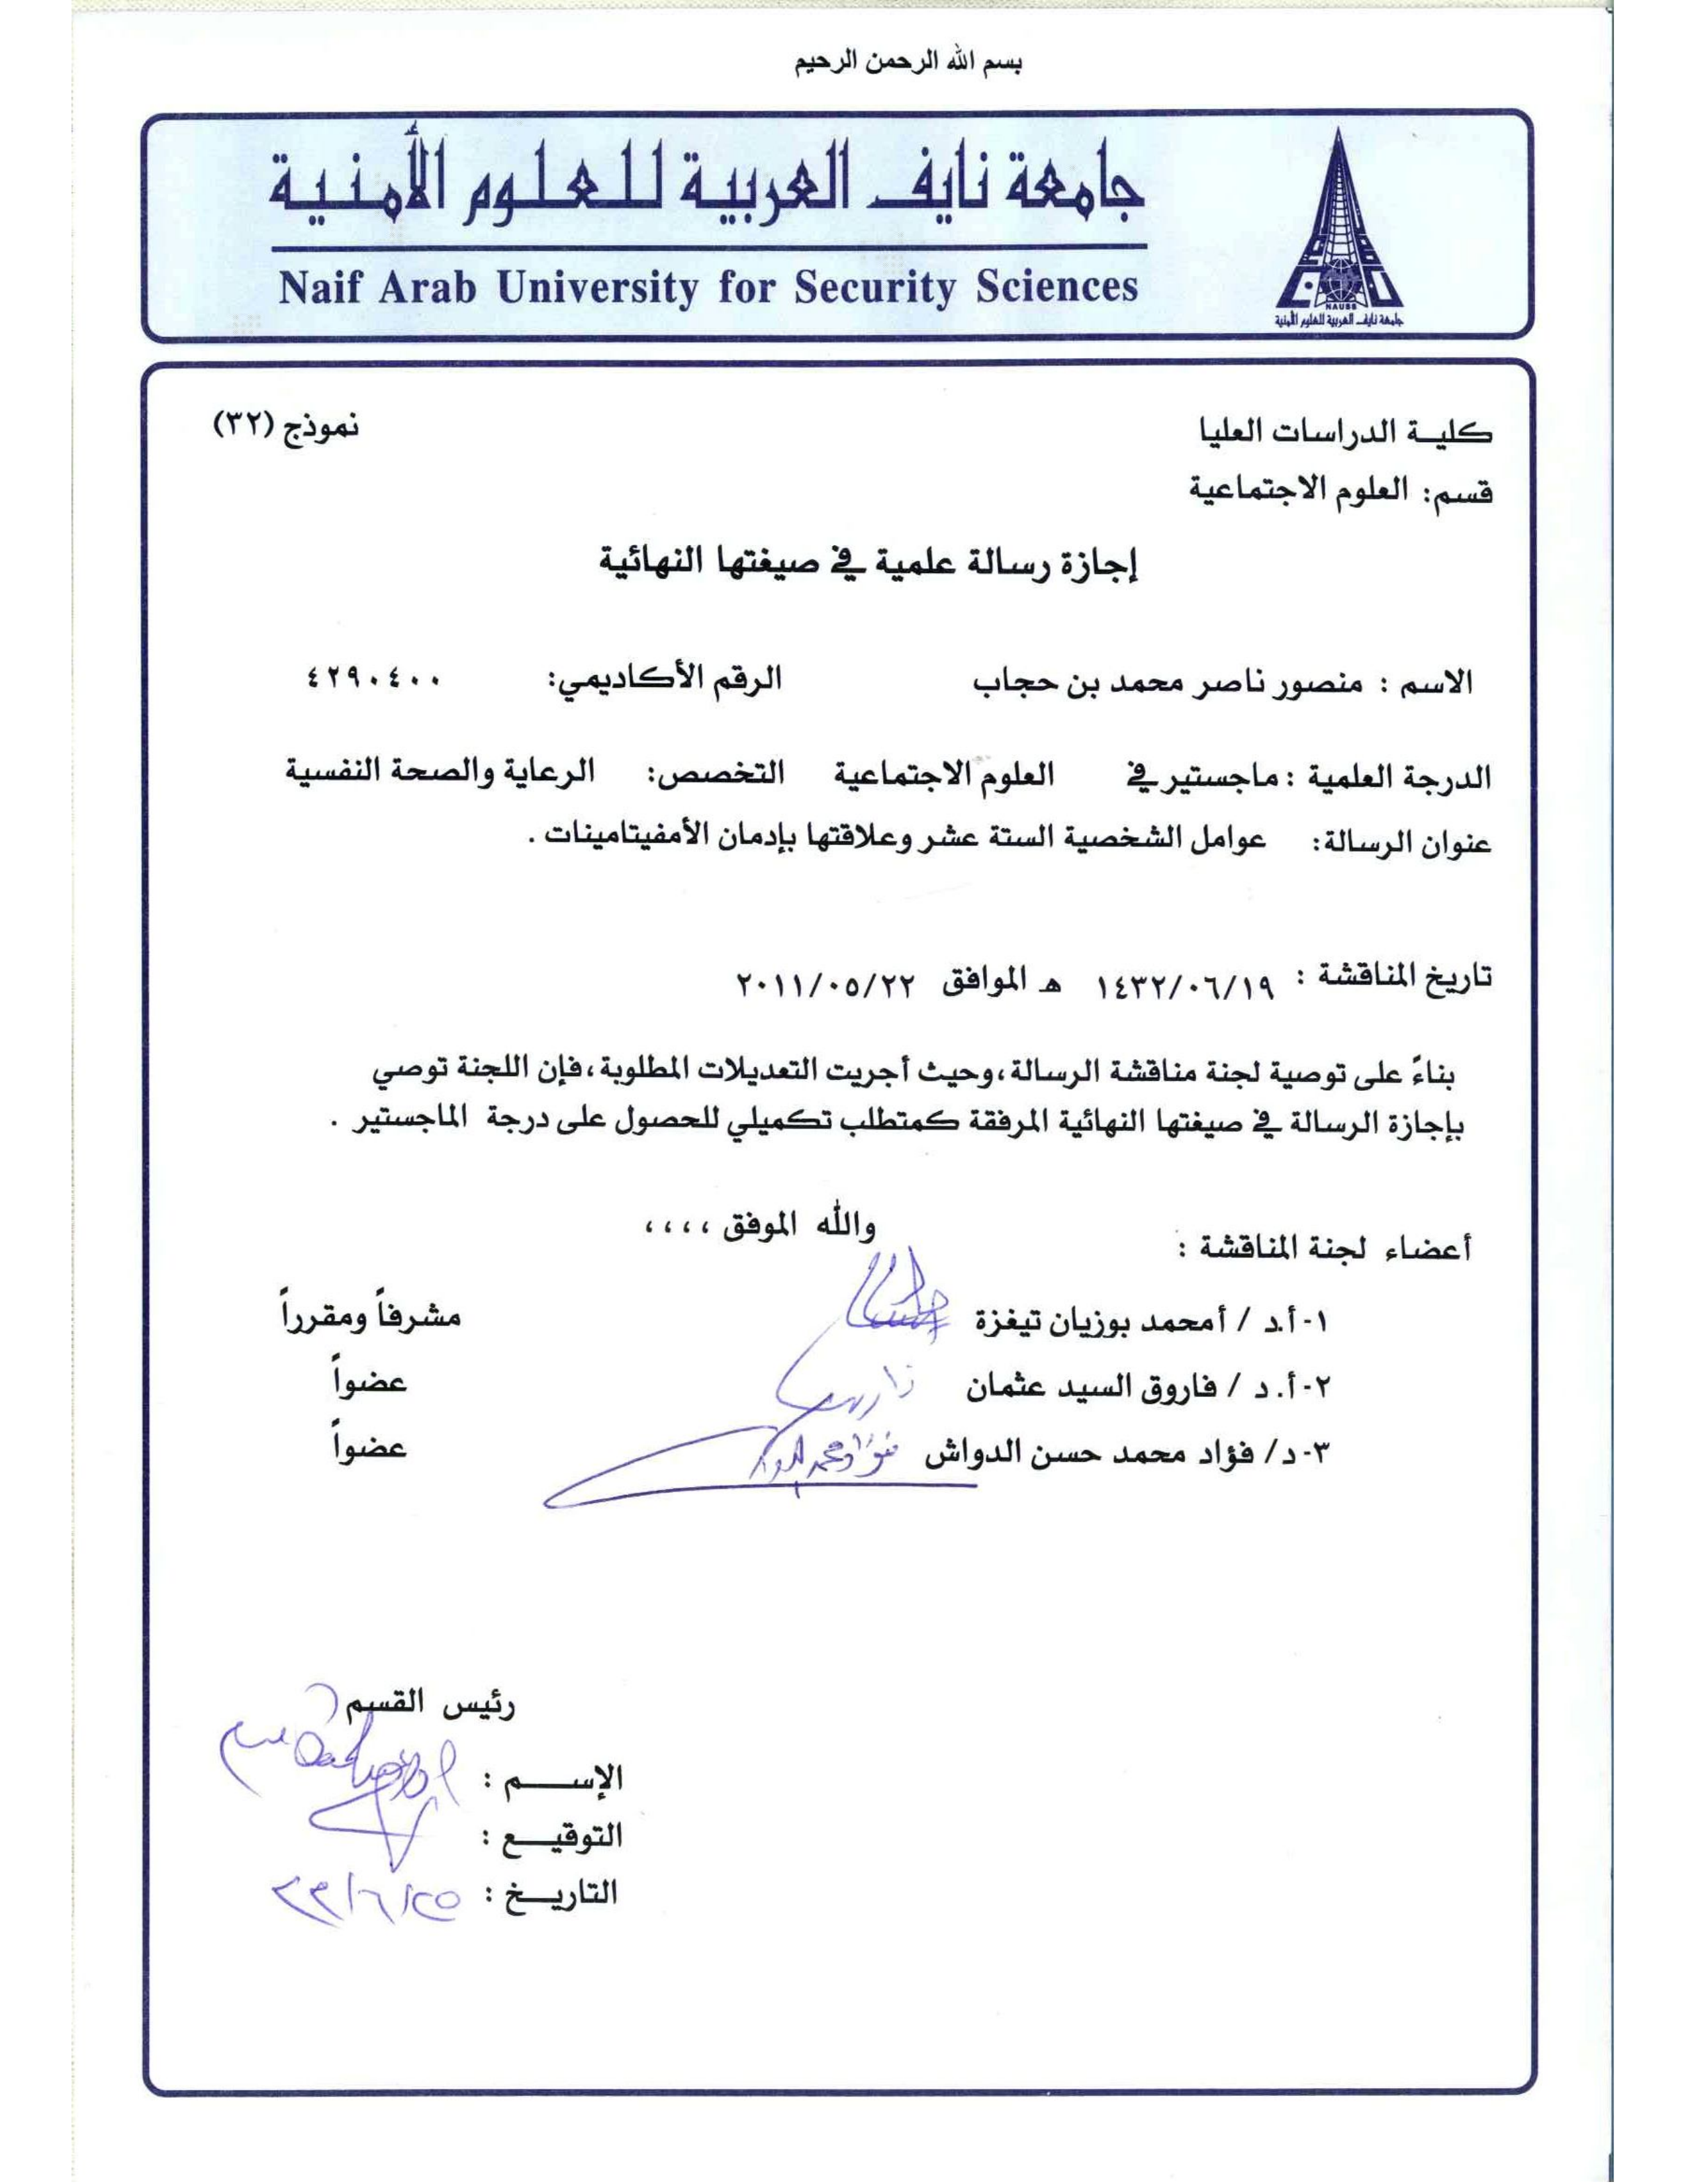 بسم الله الرحمن الرحيم
جامعة نايف العربية للعلوم الأمنية
Naif Arab University for Security Sciences
NAUSS
جامعة نايف العربية للعلوم الأمنية
كلية الدراسات العليا
نموذج (٣٢)
قسم: العلوم الاجتماعية
إجازة رسالة علمية في صيغتها النهائية
الاسم : منصور ناصر محمد بن حجاب الرقم الأكاديمي: ٤٢٩٠٤٠٠
الدرجة العلمية : ماجستير في العلوم الاجتماعية التخصص: الرعاية والصحة النفسية
عنوان الرسالة: عوامل الشخصية الستة عشر وعلاقتها بإدمان الأمفيتامينات .
تاريخ المناقشة : ١٤٣٢/٠٦/١٩ هـ الموافق ٢٠١١/٠٥/٢٢
بناءً على توصية لجنة مناقشة الرسالة،وحيث أجريت التعديلات المطلوبة،فإن اللجنة توصي
بإجازة الرسالة في صيغتها النهائية المرفقة كمتطلب تكميلي للحصول على درجة الماجستير .
والله الموفق ،،،،
أعضاء لجنة المناقشة :
١-أ.د / أمحمد بوزيان تيغزة مشرفاً ومقرراً
٢-أ.د / فاروق السيد عثمان عضواً
٣-د/ فؤاد محمد حسن الدواش عضواً
رئيس القسم
الإســـم :
التوقيـــع :
التاريـــخ :